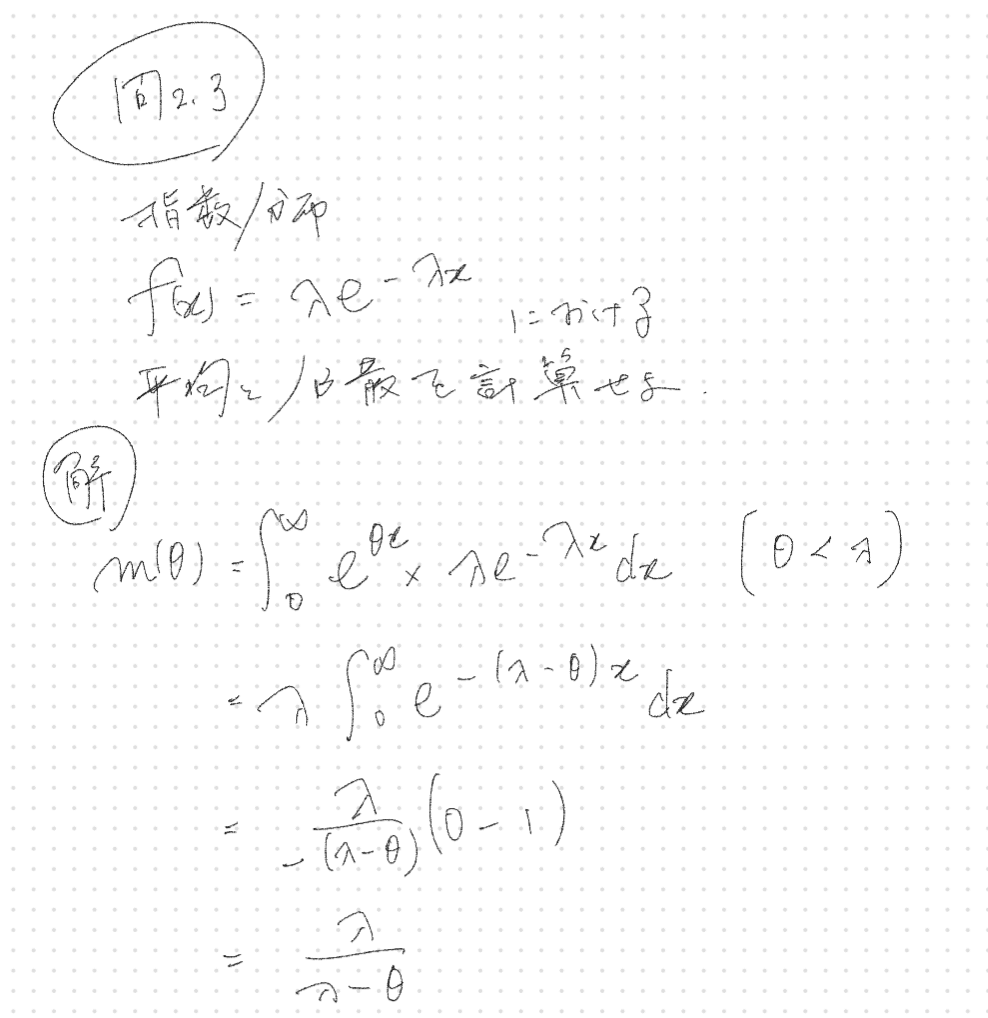 問2.3
指数分布
f(x) = λe^{-λx}
における
平均と分散を計算せよ.
解
m(θ) = ∫_0^∞ e^{θx} × λe^{-λx} dx (θ < λ)
= λ ∫_0^∞ e^{-(λ-θ)x} dx
= λ/-(λ-θ) (0-1)
= λ/(λ-θ)